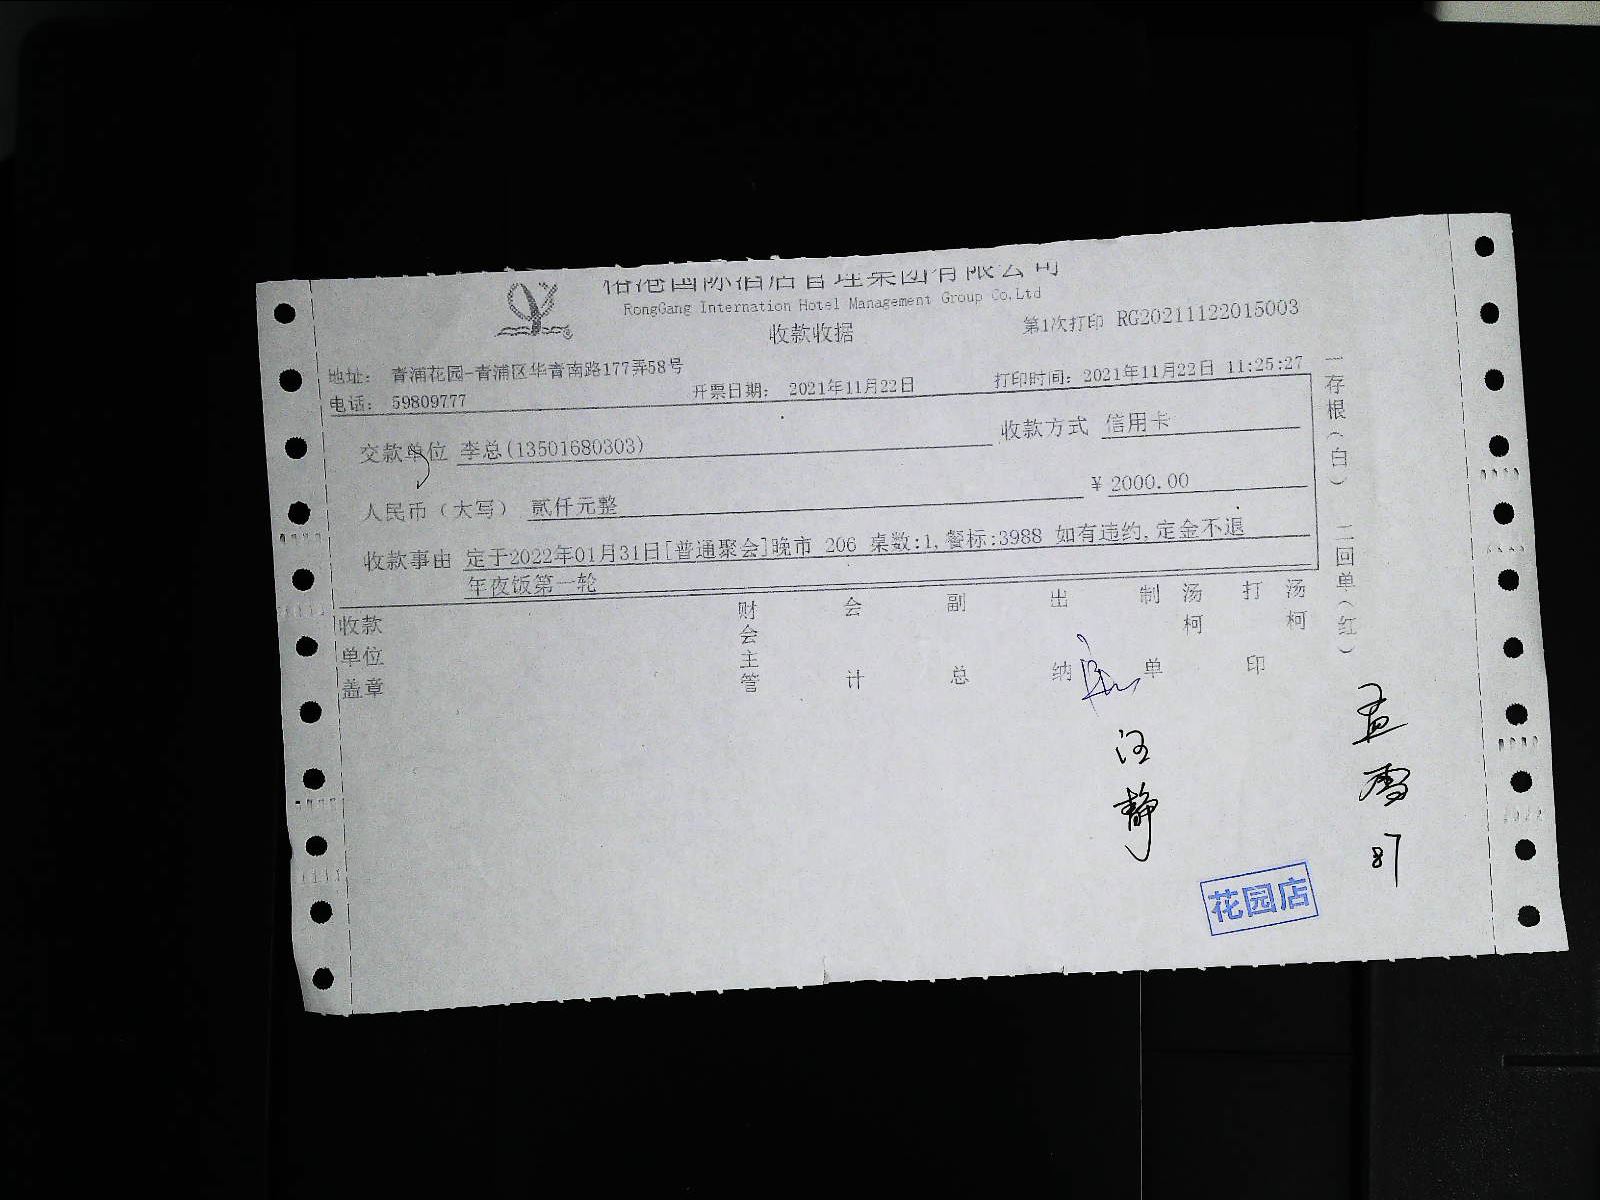 国际酒店管理集团有限公司
RongGang Internation Hotel Management Group Co.Ltd
收款收据
第1次打印 RG20211122015003
地址： 青浦花园-青浦区华青南路177弄58号
电话： 59809777
开票日期： 2021年11月22日
打印时间：2021年11月22日 11:25:27
交款单位 李总(13501680303)
收款方式 信用卡
人民币（大写） 贰仟元整
¥ 2000.00
收款事由 定于2022年01月31日[普通聚会]晚市 206 桌数:1,餐标:3988 如有违约,定金不退
年夜饭第一轮
收款单位盖章
财会主管
会计
副总
出纳
制单
汤柯
打印
汤柯
一存根（白） 二回单（红）
汪静
87
花园店